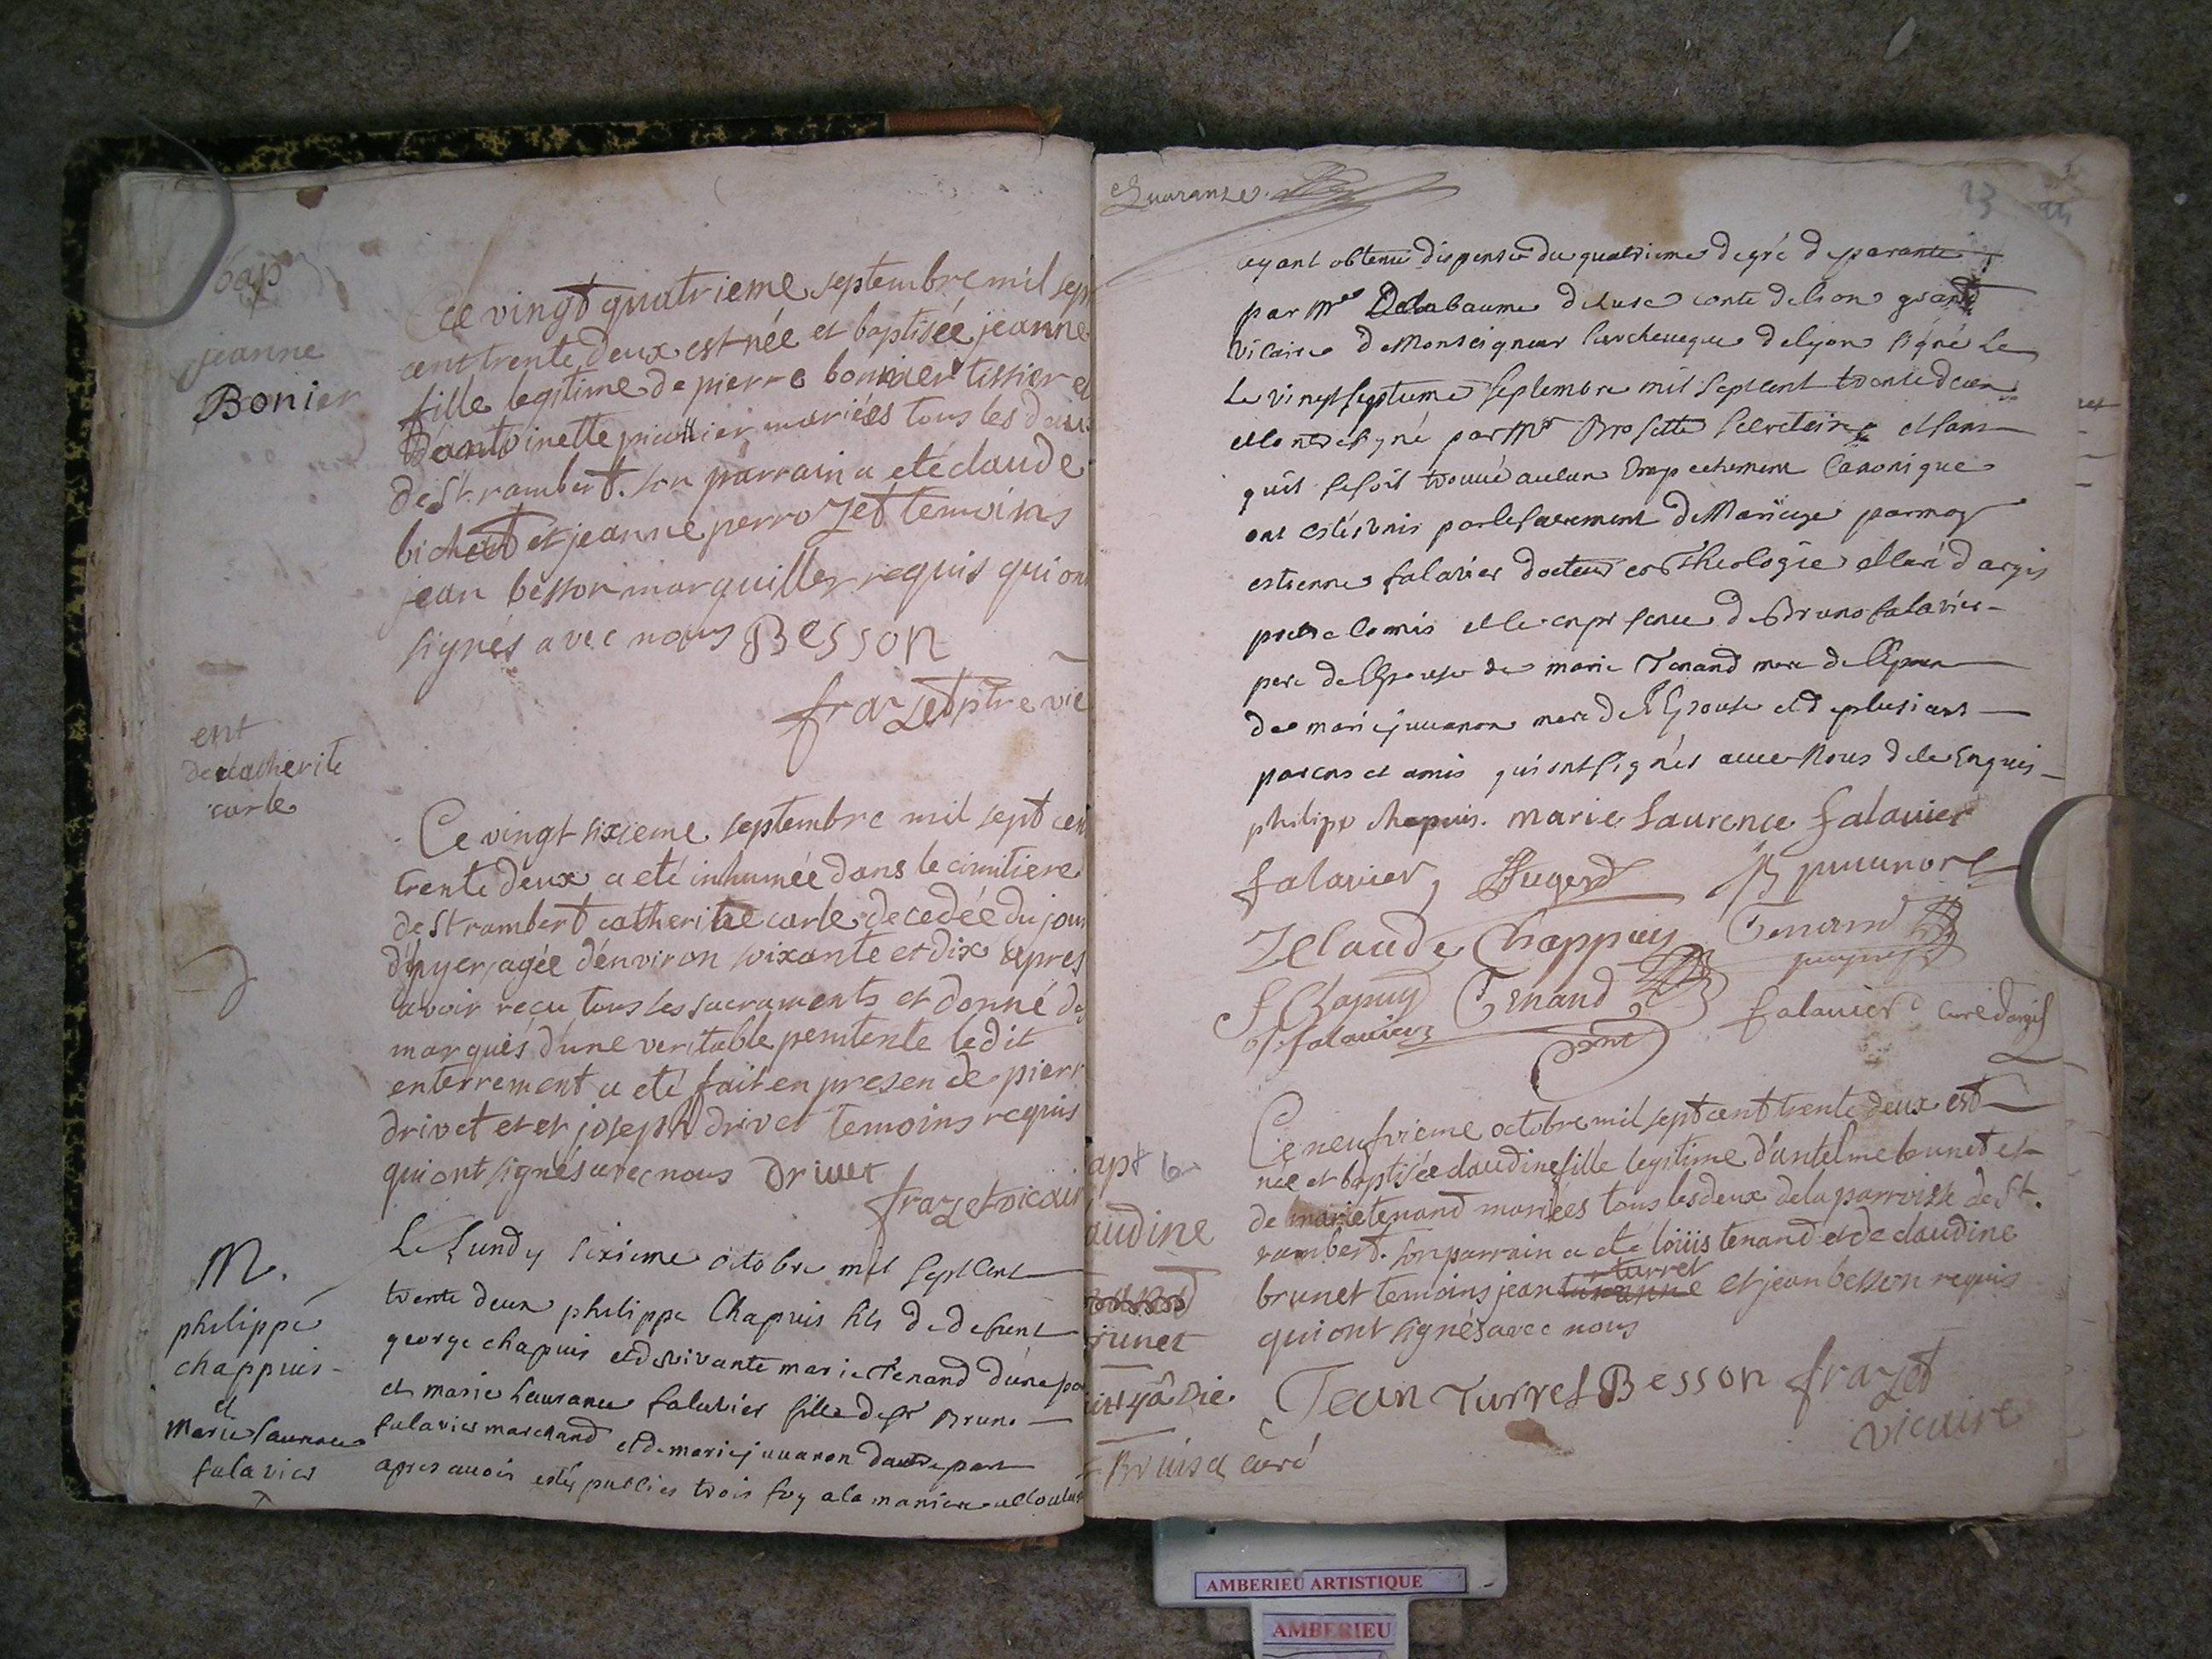 bap
jeanne
Bonier
Ce vingt quatrieme septembre mil sept
cent trente deux est née et baptisée jeanne
fille legitime de pierre bonnier tissier et
D'antoinette mariées tous les deux
de St. rambert. son parrain a eté claude
bichet et jeanne perrozet temoins
jean besson marguiller requis qui ont
signés avec nous Besson
frazet ptre vic
ent
de catherite
carle
Ce vingt sixieme septembre mil sept cen
trente deux a eté inhumée dans le cimitiere
de St rambert catherine carle decedée du jour
d'hyer, agée d'environ soixante et dix apres
avoir reçu tous les sacraments et donné de
marques d'une veritable penitente ledit
enterrement a eté fait en presen de pierr
drivet et et joseph drivet temoins requis
qui ont signés avec nous Drivet
frazet vicair
M.
philippe
chappuis
et
Marie Laurance
falavier
Le Lundy sixieme octobre mil sept cent
trente deux philippe Chapuis fils de defunt
george chapuis et de vivante marie Tenand d'une pa
et marie Laurance falavier fille de sr Bruno
falavier marchand et de marie juvanon dautre part
apres avoir estes publies trois foy a la maniere accoutu
Quarante
23
ayant obtenu dispense du quatrieme degré de parante
par Mre Delabaume desuse conte de lion grand
vicaire de Monseigneur Larcheveque de lyon signé le
Le vingt septieme septembre mil sept cent trente deux
et contresigné par Mr Brosette secretaire et sans
quil se soit trouvé aucun Empechement Canonique
ont estés unis par le sacrement de Mariage par moy
estienne falavier docteur en Theologie et curé d'argis
pretre comis et le en presence de Bruno falavier
pere de l'Epouse de marie Tenand mere de l'Epoux
de marie juvanon mere de l'Epouse et de plusieurs
parens et amis qui ont signés avec Nous de ce Enquis
philipe chapuis. marie Laurence falavier
falavier, Juvanon
Claude Chappuy Tenand
f Chapuy Tenand falavier curé dargis
falavier
apt
audine
brunet
Ce neufvieme octobre mil sept cent trente deux est
née et baptisée claudine fille legitime d'antelme brunet et
de marie tenand mariees tous les deux de la parroisse de St.
rambert. son parrain a eté loüis tenand et de claudine
turret
brunet temoins jean et jean besson requis
qui ont signés avec nous
Jean Turret Besson frazet
vicaire
curé
AMBERIEU ARTISTIQUE
AMBERIEU